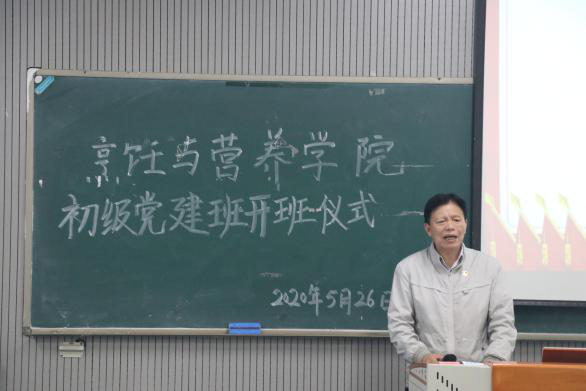 烹饪与营养学院
初级党建班开班仪式
2020年5月26日